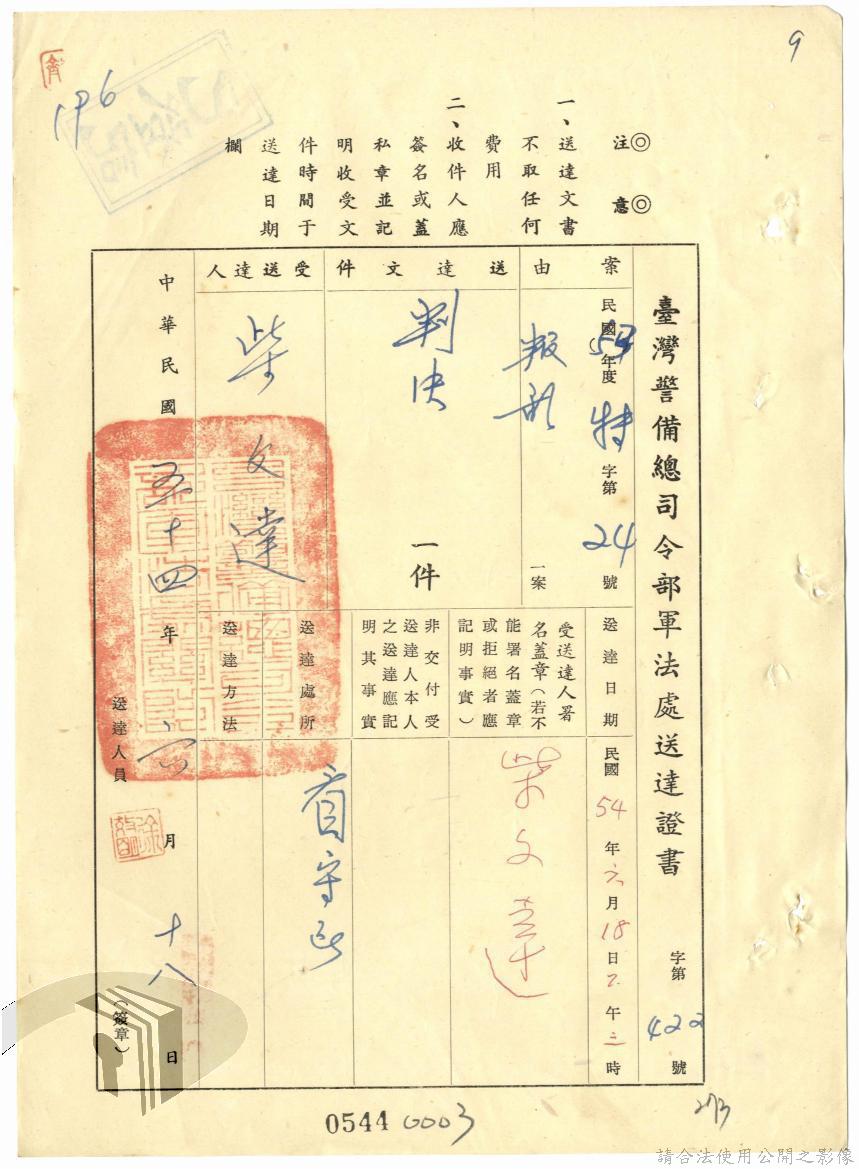 9
196
注意
一、送達文書不取任何費用
二、收件人應簽名或蓋私章並記明收受文件時間于送達日期欄
臺灣警備總司令部軍法處送達證書
字第422號
案由
民國54年度特字第24號
叛亂
一案
送達文件
判決
一件
受送達人
柴文達
送達日期
民國54年六月18日下午三時
受送達人署名蓋章(若不能署名蓋章或拒絕者應記明事實)
柴文達
非交付受送達人本人之送達應記明其事實
送達處所
看守所
送達方法
中華民國五十四年六月十八日
送達人員
(簽章)
0544 0003
273
請合法使用公開之影像